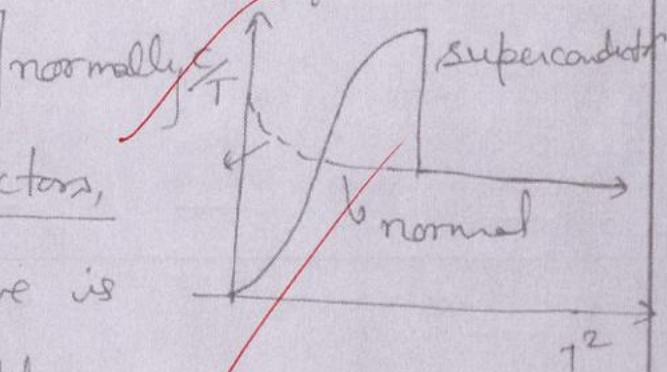 normally
C/T
superconduct
ctors,
normal
re is
T²